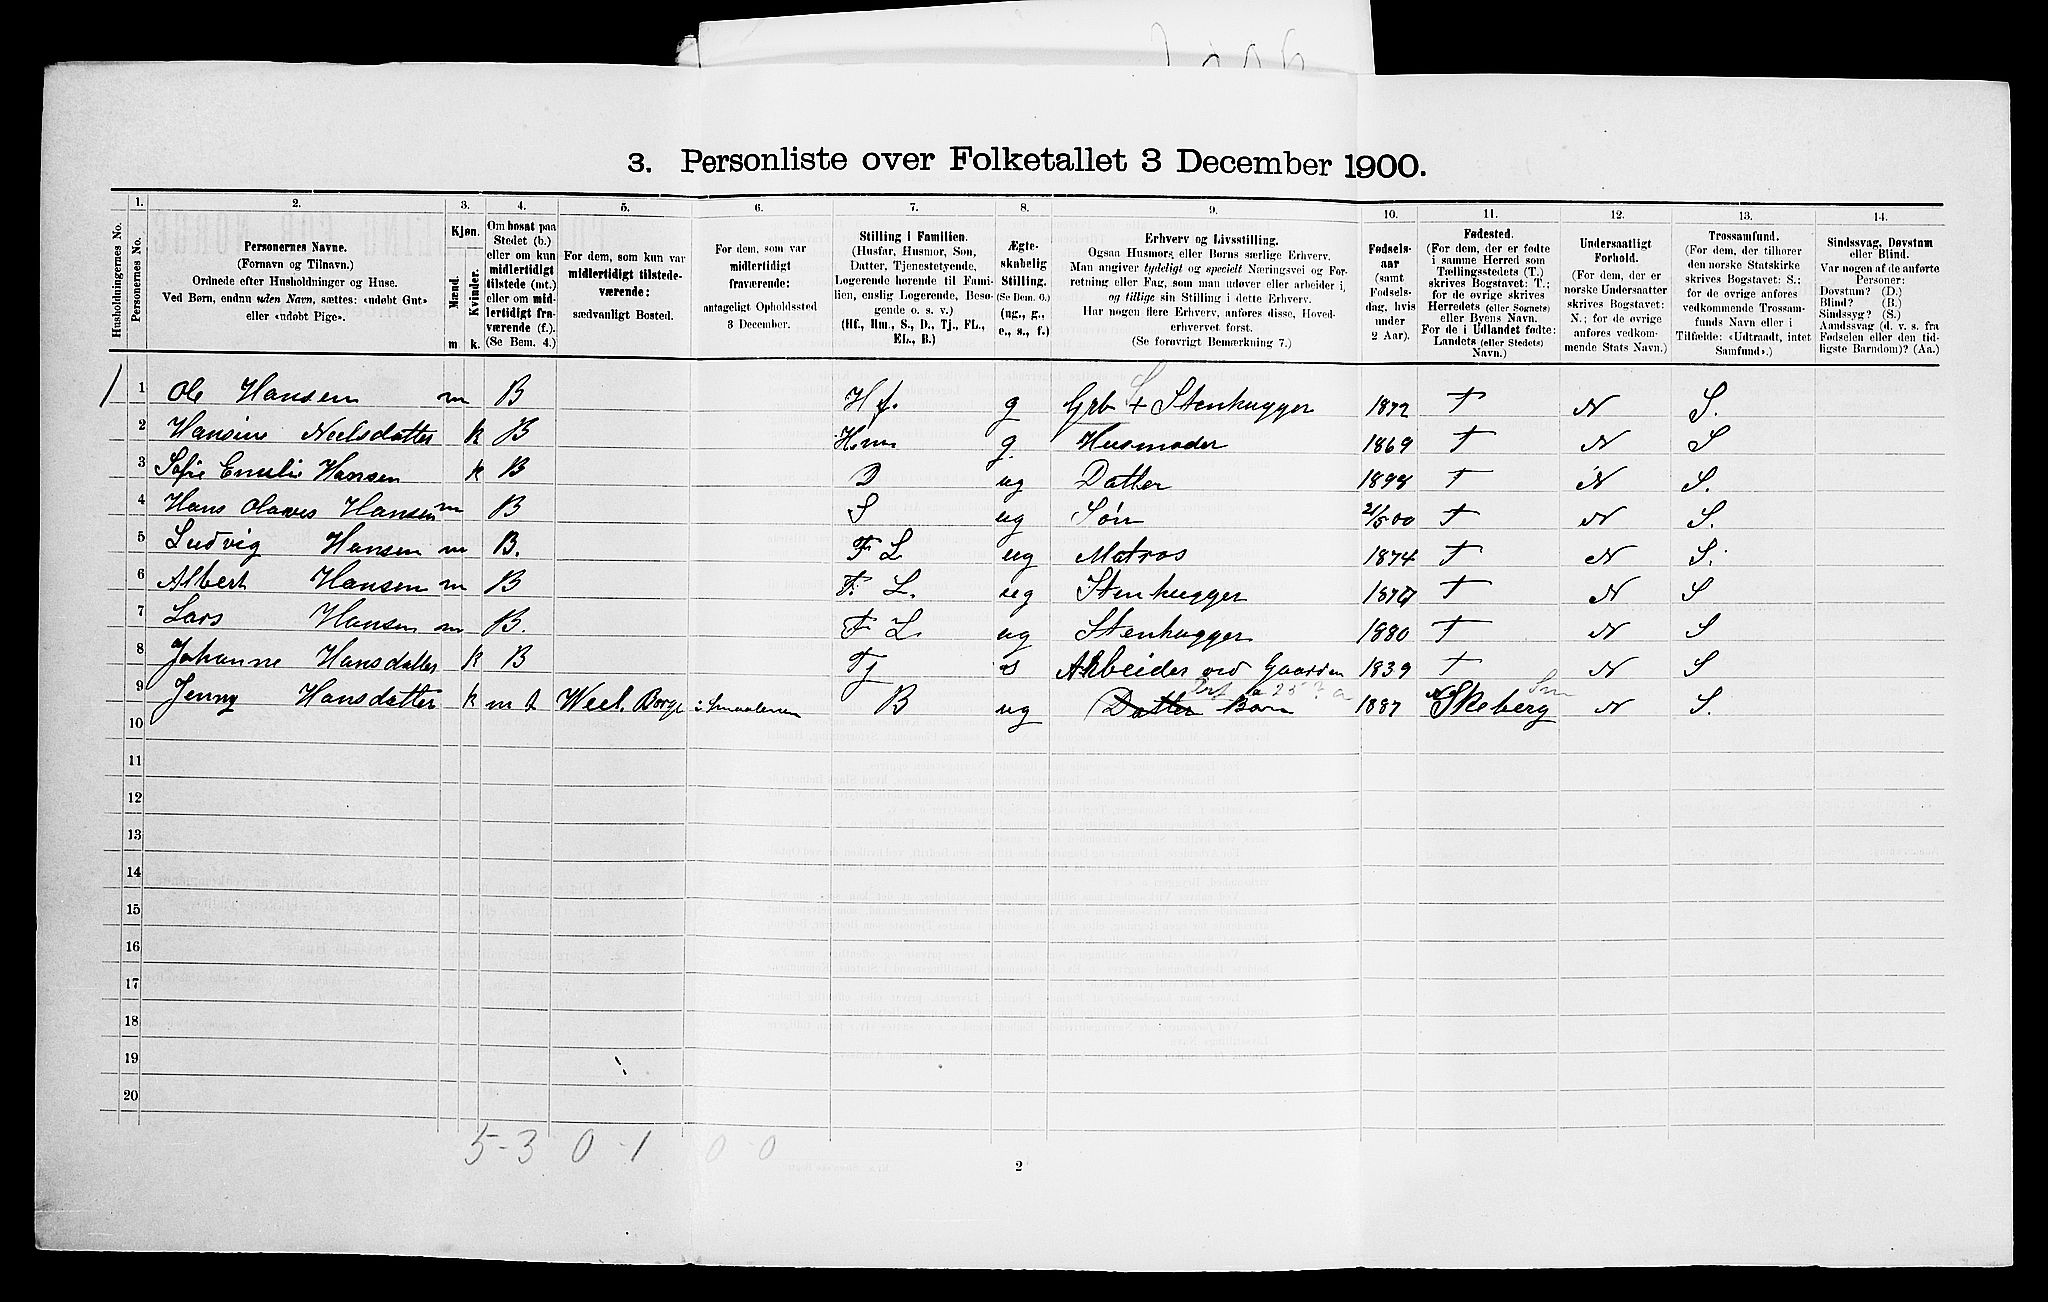 3. Personliste over Folketallet 3 December 1900.
Husholdningernes No.
1.
Personernes No.
2.
Personernes Navne.
(Fornavn og Tilnavn.)
Ordnede efter Husholdninger og Huse.
Ved Børn, endnu uden Navn, sættes: «udøbt Gut»
eller «udøbt Pige».
3.
Kjøn.
Mænd.
Kvinder.
m k.
4.
Om bosat paa
Stedet (b.)
eller om kun
midlertidigt
tilstede (mt.)
eller om mid-
lertidigt fra-
værende (f.).
(Se Bem. 4.)
5.
For dem, som kun var
midlertidigt tilstede-
værende:
sædvanligt Bosted.
6.
For dem, som var
midlertidigt
fraværende:
antageligt Opholdssted
3 December.
7.
Stilling i Familien.
(Husfar, Husmor, Søn,
Datter, Tjenestetyende,
Logerende hørende til Fami-
lien, enslig Logerende, Besø-
gende o. s. v.)
(Hf., Hm., S., D., Tj., FL.,
EL., B.)
8.
Ægte-
skabelig
Stilling.
(Se Bem. 6.)
(ug., g.,
e., s., f.)
9.
Erhverv og Livsstilling.
Ogsaa Husmors eller Børns særlige Erhverv.
Man angiver tydeligt og specielt Næringsvei og For-
retning eller Fag, som man udøver eller arbeider i,
og tillige sin Stilling i dette Erhverv.
Har nogen flere Erhverv, anføres disse, Hoved-
erhvervet forst.
(Se forøvrigt Bemærkning 7.)
10.
Fødsels-
aar
(samt
Fødsels-
dag, hvis
under
2 Aar).
11.
Fødested.
(For dem, der er fødte
i samme Herred som
Tællingsstedets (T.)
skrives Bogstavet: T.;
for de øvrige skrives
Herredets (eller Sognets)
eller Byens Navn.
For de i Udlandet fødte:
Landets (eller Stedets)
Navn.)
12.
Undersaatligt
Forhold.
(For dem, der er
norske Undersaatter
skrives Bogstavet:
N.; for de øvrige
anføres vedkom-
mende Stats Navn.)
13.
Trossamfund.
(For dem, der tilhører
den norske Statskirke
skrives Bogstavet: S.;
for de øvrige anføres
vedkommende Trossam-
funds Navn eller i
Tilfælde: «Udtraadt, intet
Samfund».)
14.
Sindssvag, Døvstum
eller Blind.
Var nogen af de anførte
Personer:
Døvstum? (D.)
Blind? (B.)
Sindssyg? (S.)
Aandssvag (d. v. s. fra
Fødselen eller den tid-
ligste Barndom)? (Aa.)
1 1 Ole Hansen m B Hf. g Grb + Stenhugger 1872 T N S.
2 Hansine Neelsdatter k B Hm g Husmoder 1869 T N S
3 Sofie Emilie Hansen k B D ug Datter 1898 T N S.
4 Hans Olaves Hansen m B S ug Søn 21/5 00 T N S.
5 Ludvig Hansen m B. F L ug Matros 1874 T N S.
6 Albert Hansen m B F. L. ug Stenhugger 1877 T N S
7 Lars Hansen m B. F L ug Stenhugger 1880 T N S
8 Johanne Hansdatter k B Tj s Arbeider ved Gaarden 1839 T N S
9 Jenny Hansdatter k m t Borge i Smaalenene B ug Datter Barn 1887 Skeberg N S.
10
11
12
13
14
15
16
17
18
19
20
5-3 0-1 0-0
2